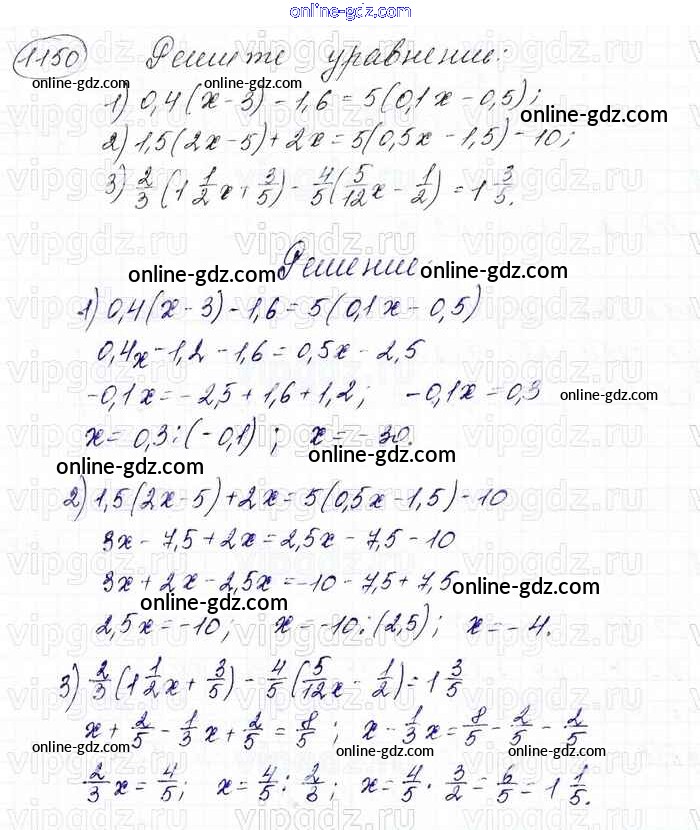 online-gdz.com
1150 Решите уравнение:
online-gdz.com online-gdz.com
1) 0,4(x-3)-1,6=5(0,1x-0,5);
online-gdz.com
2) 1,5(2x-5)+2x=5(0,5x-1,5)-10;
3) 2/3(1 1/2x+3/5)-4/5(5/12x-1/2)=1 3/5.
Решение.
online-gdz.com online-gdz.com
1) 0,4(x-3)-1,6=5(0,1x-0,5)
0,4x-1,2-1,6=0,5x-2,5
-0,1x=-2,5+1,6+1,2; -0,1x=0,3
online-gdz.com
x=0,3:(-0,1); x=-30.
online-gdz.com online-gdz.com
2) 1,5(2x-5)+2x=5(0,5x-1,5)-10
3x-7,5+2x=2,5x-7,5-10
3x+2x-2,5x=-10-7,5+7,5
online-gdz.com online-gdz.com
2,5x=-10; x=-10:(2,5); x=-4.
3) 2/3(1 1/2x+3/5)-4/5(5/12x-1/2)=1 3/5
x+2/5-1/3x+2/5=8/5; x-1/3x=8/5-2/5-2/5
online-gdz.com online-gdz.com online-gdz.com
2/3x=4/5; x=4/5:2/3; x=4/5·3/2=6/5=1 1/5.